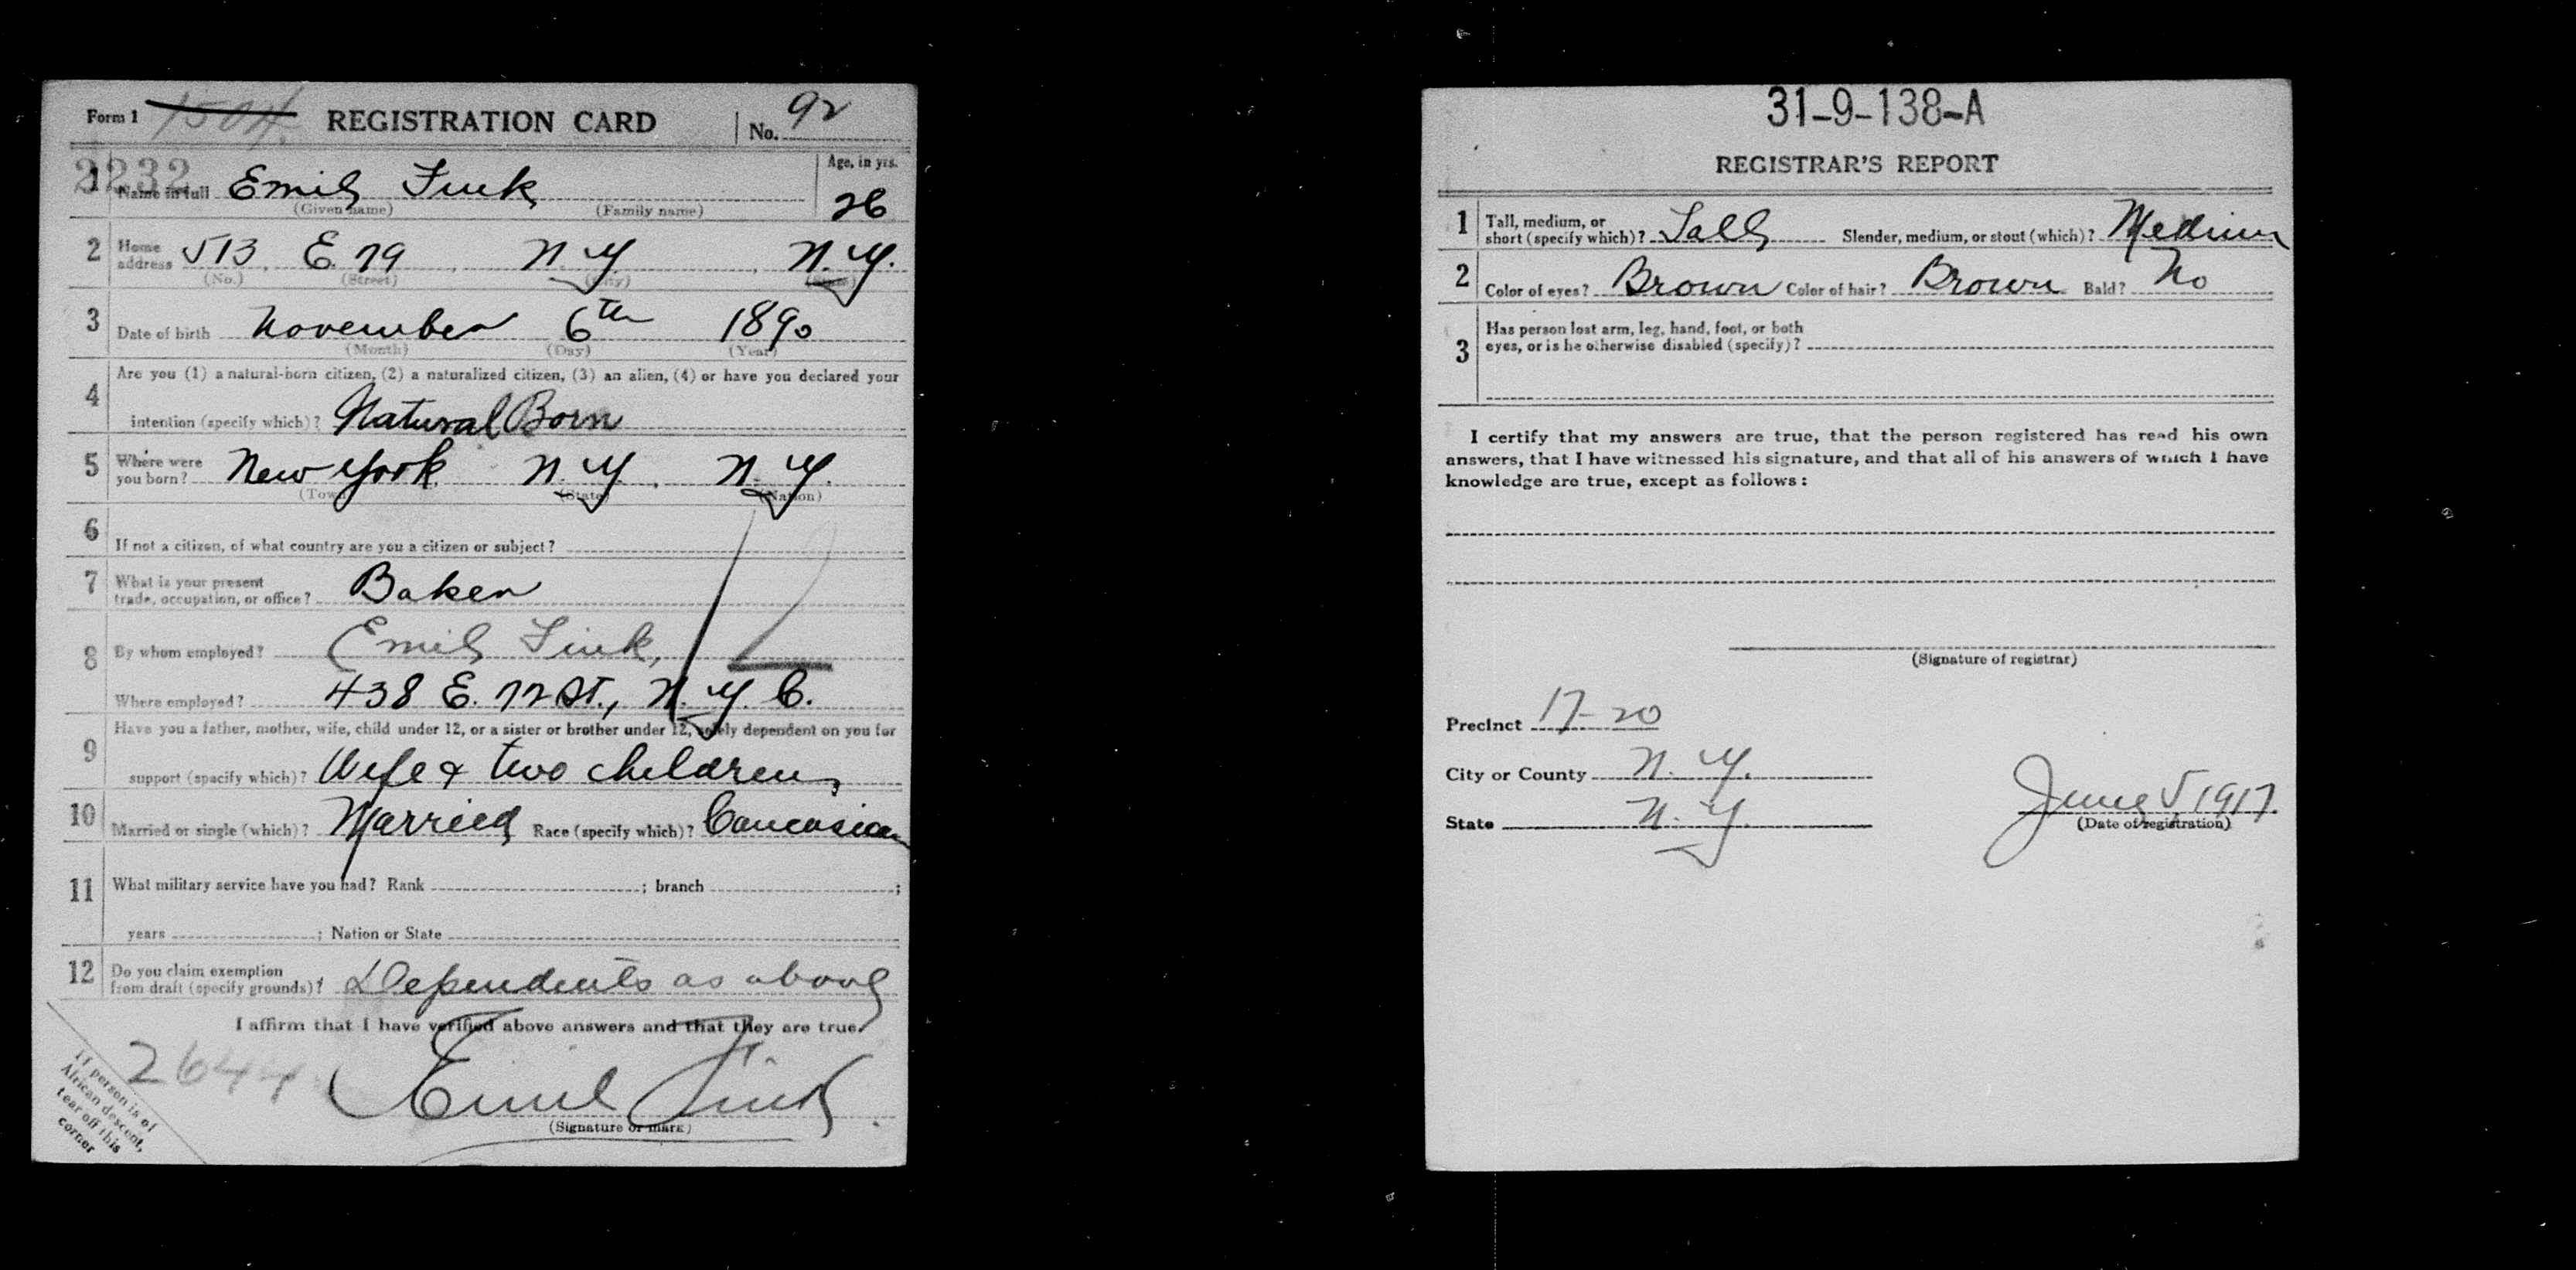 Form 1 1504. REGISTRATION CARD No. 92
2232
1 Name in full Emil Fink Age, in yrs. 26
(Given name) (Family name)
2 Home address 513 E. 79 N.Y. N.Y.
(No.) (Street) (City) (State)
3 Date of birth November 6th 1890
(Month) (Day) (Year)
4 Are you (1) a natural-born citizen, (2) a naturalized citizen, (3) an alien, (4) or have you declared your
intention (specify which)? Natural Born
5 Where were you born? New York N.Y. N.Y.
(Town) (State) (Nation)
6 If not a citizen, of what country are you a citizen or subject?
7 What is your present trade, occupation, or office? Baker
8 By whom employed? Emil Fink,
Where employed? 438 E. 72 St., N.Y.C.
9 Have you a father, mother, wife, child under 12, or a sister or brother under 12, solely dependent on you for
support (specify which)? Wife & two children
10 Married or single (which)? Married Race (specify which)? Caucasian
11 What military service have you had? Rank ; branch ;
years ; Nation or State
12 Do you claim exemption from draft (specify grounds)? Dependents as above
I affirm that I have verified above answers and that they are true.
2644
Emil Fink
(Signature or mark)
If person is of
African descent,
tear off this
corner
31-9-138-A
REGISTRAR'S REPORT
1 Tall, medium, or short (specify which)? Tall Slender, medium, or stout (which)? Medium
2 Color of eyes? Brown Color of hair? Brown Bald? No
3 Has person lost arm, leg, hand, foot, or both
eyes, or is he otherwise disabled (specify)?
I certify that my answers are true, that the person registered has read his own
answers, that I have witnessed his signature, and that all of his answers of which I have
knowledge are true, except as follows:
(Signature of registrar)
Precinct 17-20
City or County N.Y.
State N.Y.
June 5 1917.
(Date of registration)